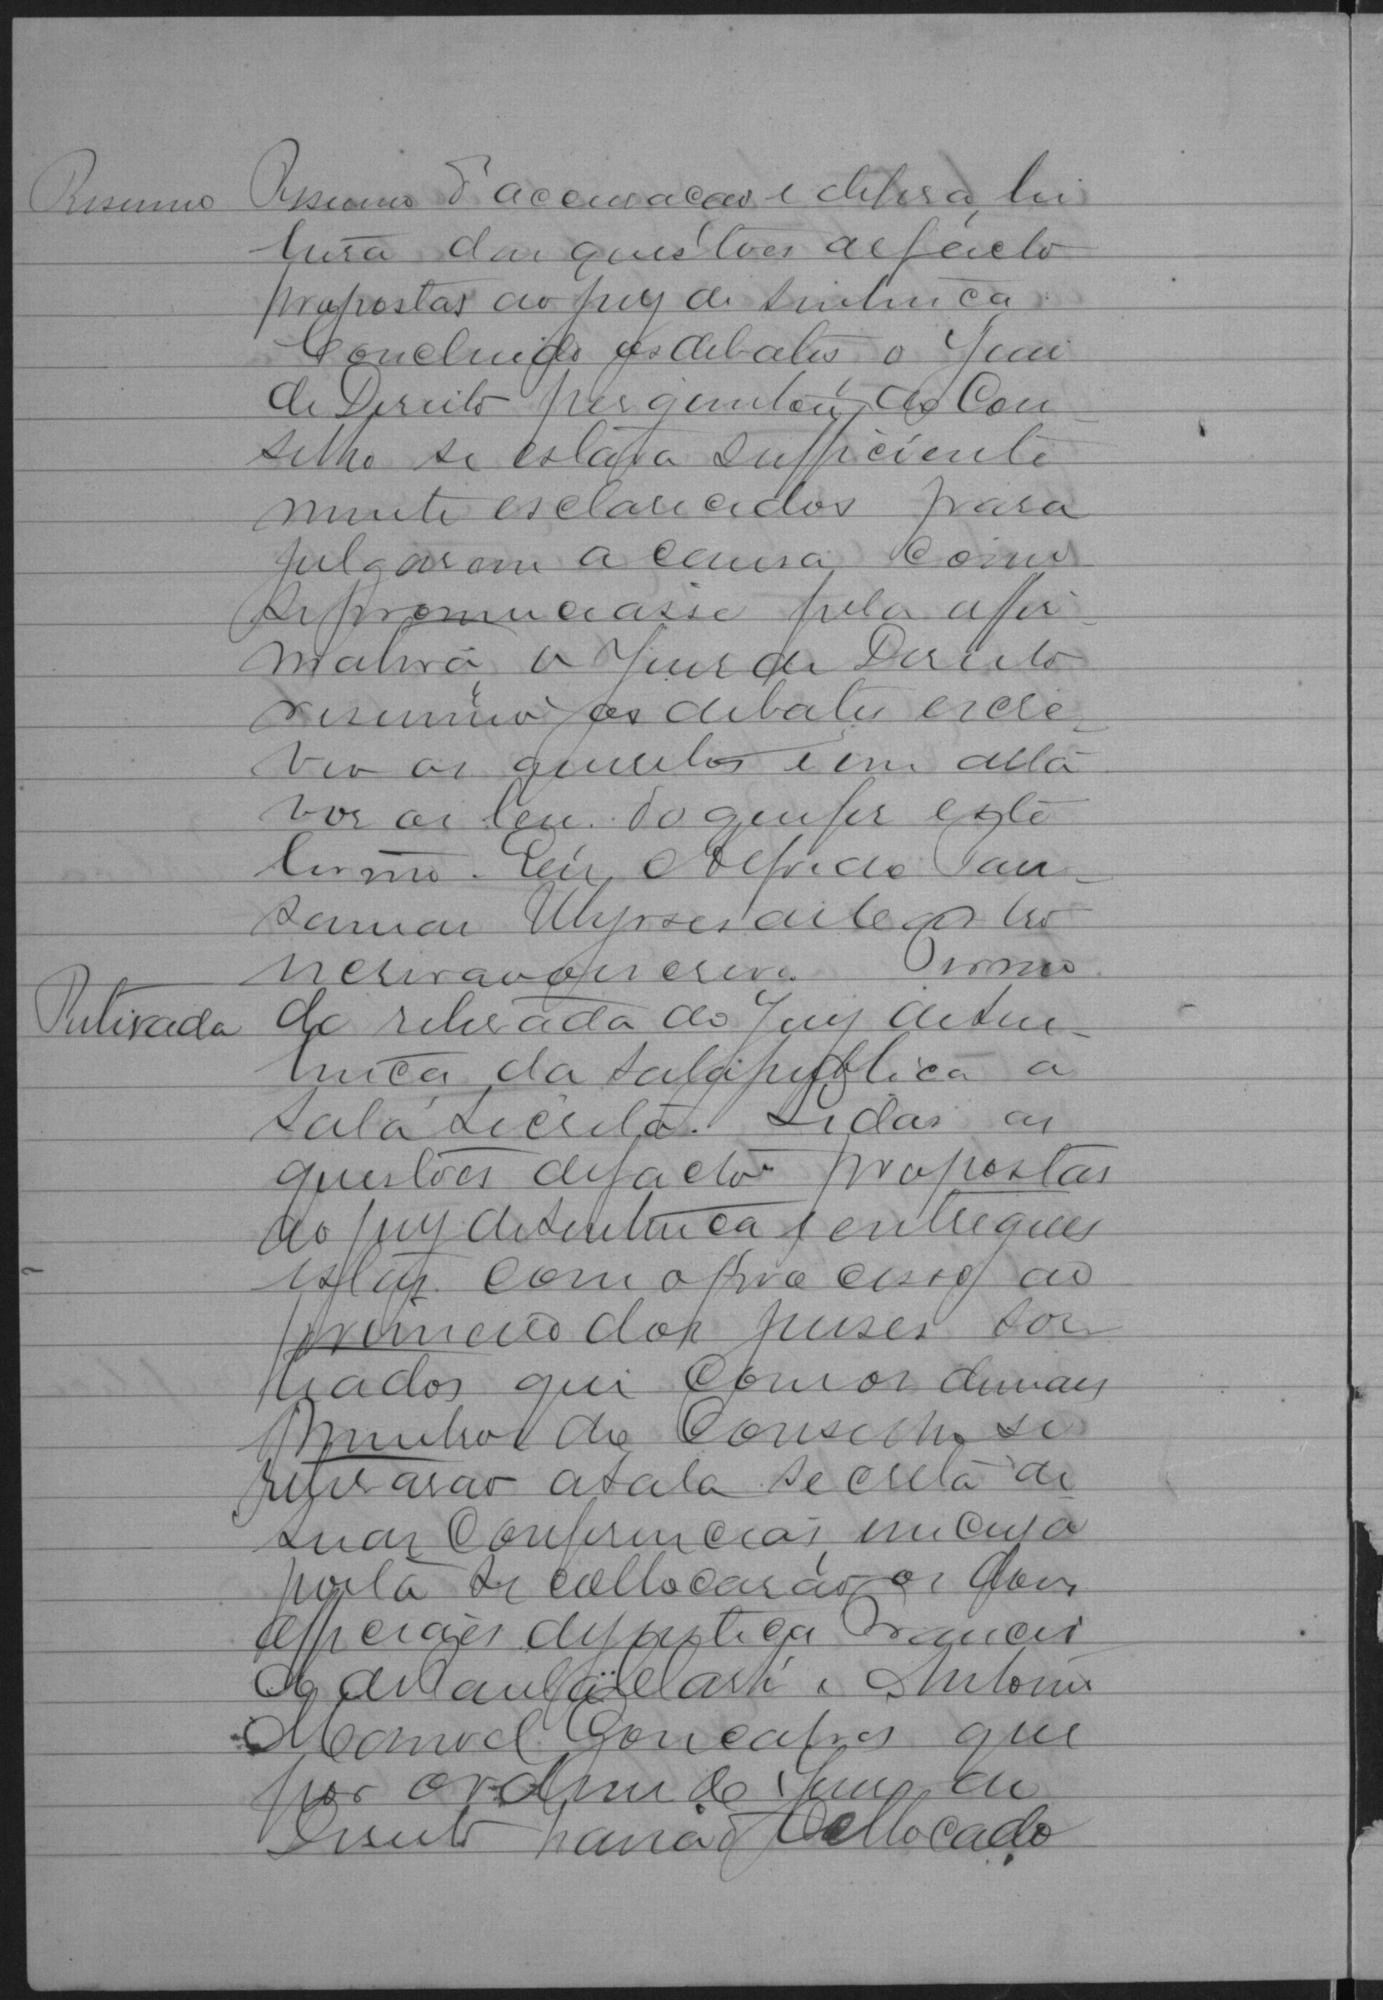 Resumo
Resumo d'accusação e defesa, lei
tura das questões de facto
propostas ao jury de sentença.
Concluido os debates o Juiz
de Direito perguntou ao Con
selho se estava sufficiente
mente esclarecidos para
julgarem a causa, como
se pronunciasse pela affir
mativa, o Juiz de Direito
resumio os debates escre
veo os quesitos e em alta
vos os leu. Do que fiz este
termo. Eu, Alfredo
Ulysses de Castro
escrivão o escrevi. Termo
Retirada
da retirada do Jury de sen
tença da sala publica a
sala secreta. Lidas as
questões de facto propostas
ao jury de sentença e entregues
estas com o processo ao
primeiro dos juises sor
teados que com os demais
membros do Conselho se
retirarão a sala secreta de
suas Conferencias, em cuja
porta se collocarão os dous
officiaes de justiça Francis
co de Paula e Antonio
Manoel Gonçalves que
por ordem do Juiz de
Direito havia collocado